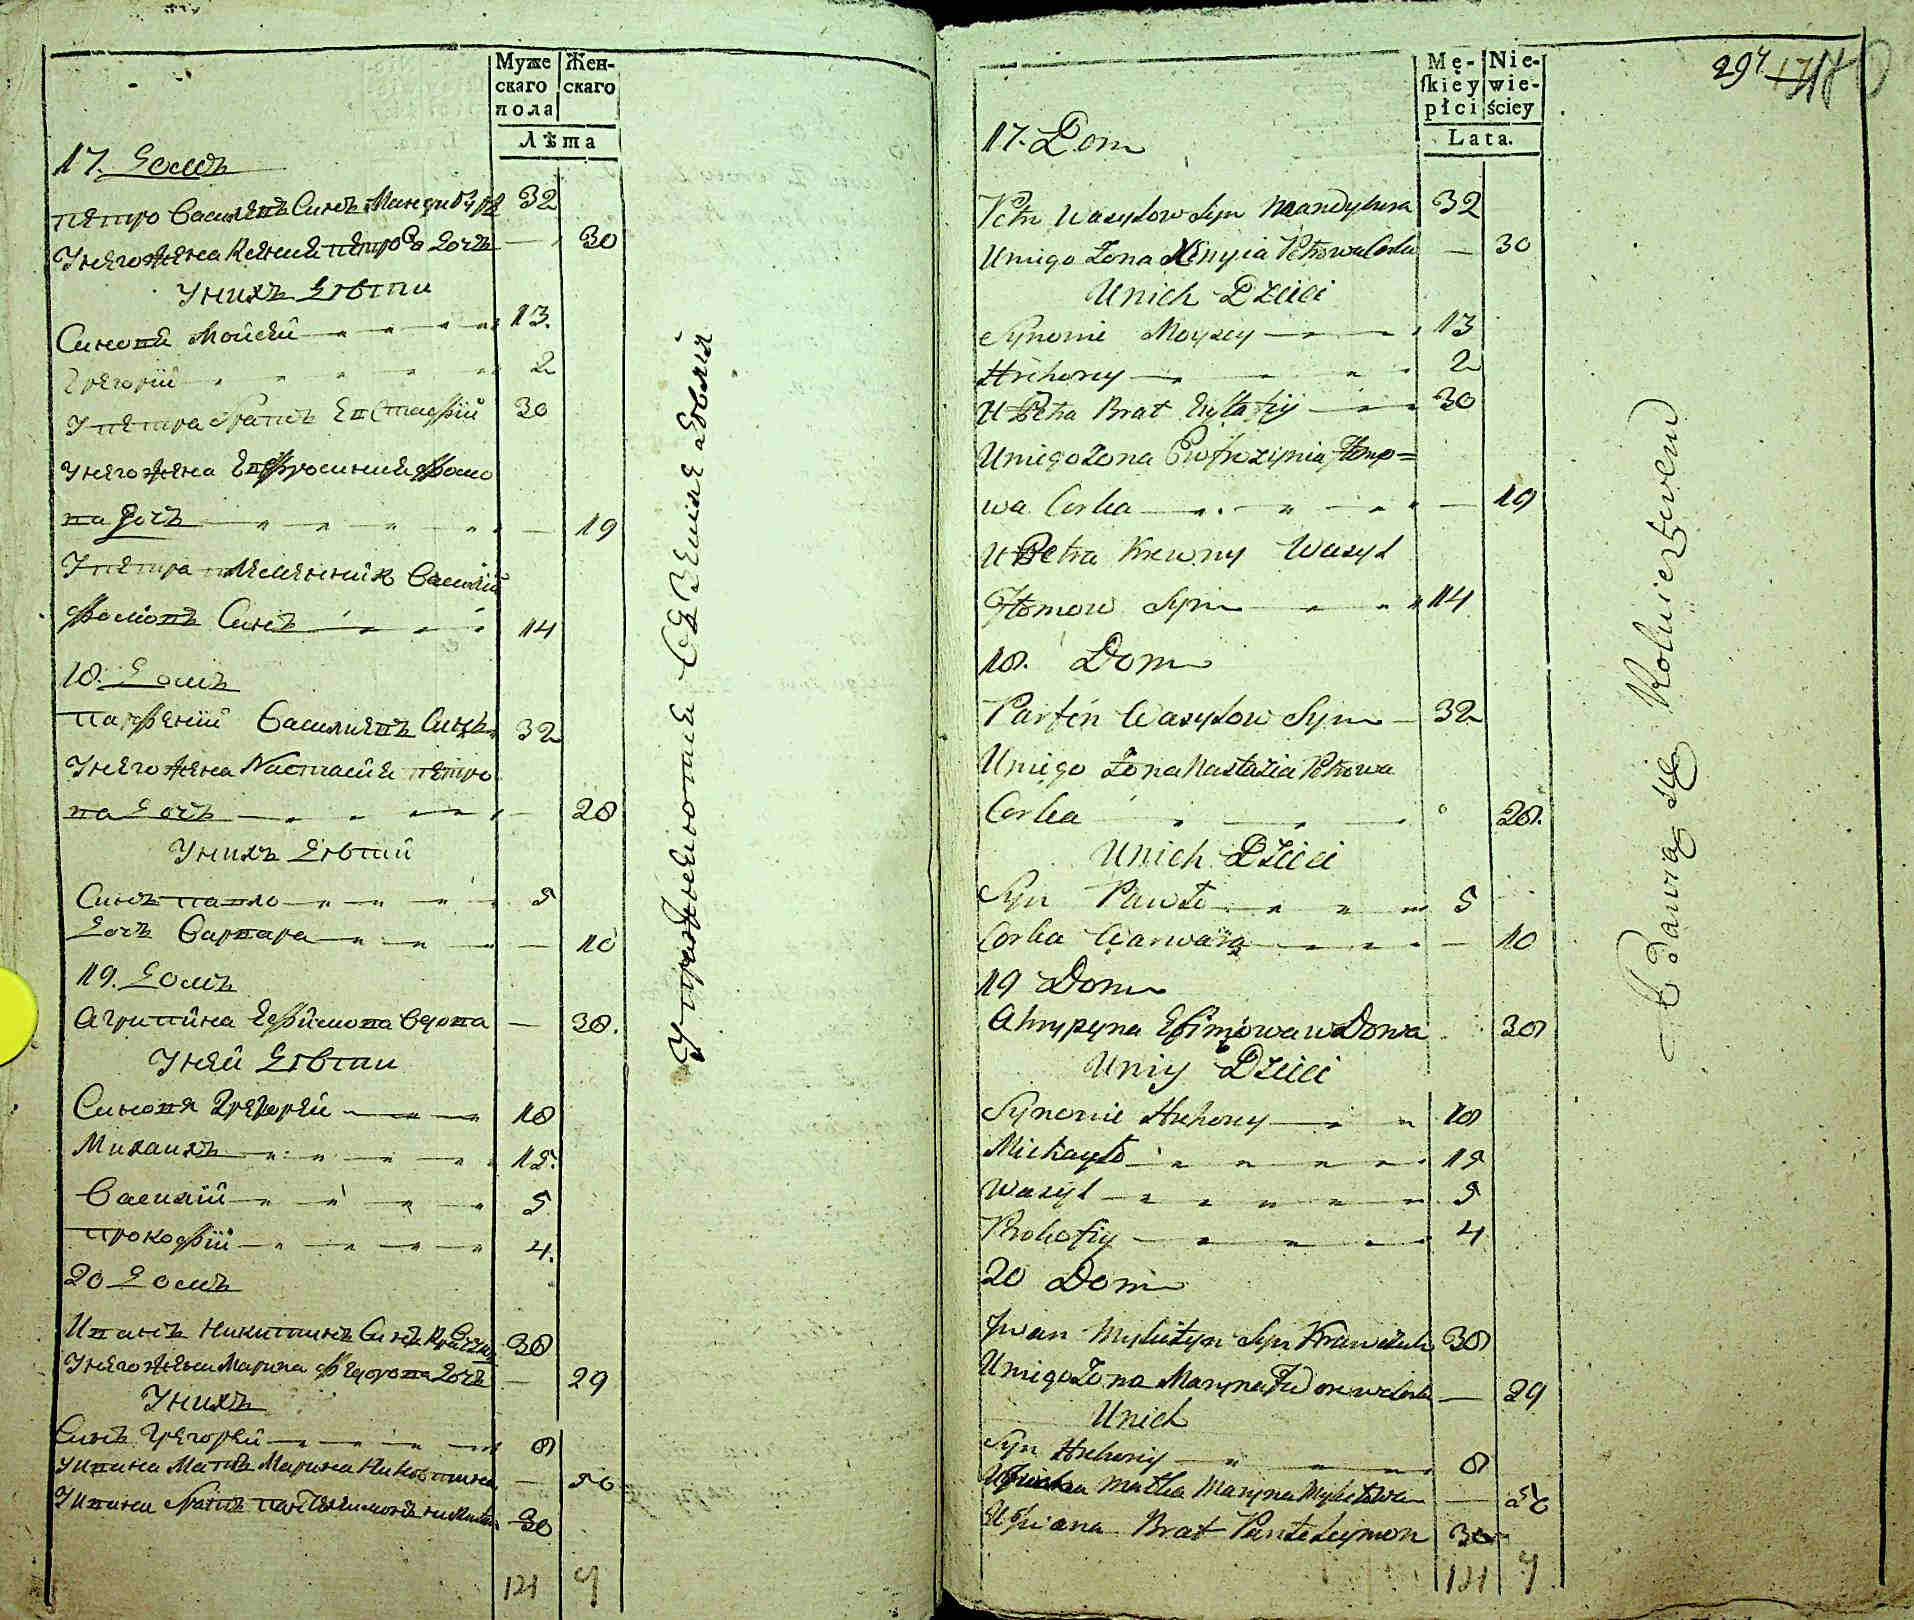 Муже
скаго
пола
Жен-
скаго
Лѣта
17. Домъ
Петро Василевъ Синъ Мандибура 32
У него жена Ксения Петрова дочь — 30
У нихъ Дѣти
Синове Мойсей 13.
Григорій 2
У Петра братъ Евстафій 30
У него жена Евфросиния Фомо
ва дочь — 19
У Петра племенникъ Василій
Фомовъ Синъ 14
18. Домъ
Парфеній Василиевъ Синъ 32
У него жена Настасия Петро
ва дочь — 28
У нихъ Дѣти
Синъ Павло 5
Дочь Варвара — 10
19. Домъ
Агрипина Ефимова вдова — 38.
У ней Дѣти
Синове Григорей 18
Михаилъ 15.
Василій 5
Прокофій 4.
20 Домъ
Иванъ Никитинъ Синъ 38
У него жена Марина Федорова дочь — 29
У нихъ
Синъ Григорей 8
У Ивана Мать Марина Никитина — 56
У Ивана братъ Пантелимонъ 30
121 9
Упражняются въ земледелия
294
Mę-
ſkiey
płci
Nie-
wie-
ściey
Lata.
17. Dom
Petr Wasylow Syn Mandybura 32
U niego Żona Xenyia Petrowa Corka — 30
U nich Dzieci
Synowie Moysey 13
Hrehory 2
U Petra Brat Eustafiy 30
U niego Żona Ewfrozynia Homo=
wa Corka — 19
U Petra Krewny Wasyl
Homow Syn 14
18. Dom
Parfen Wasylow Syn 32
U niego Żona Nastazia Petrowa
Corka 28.
U nich Dzieci
Syn Pawło 5
Corka Warwara — 10
19 Dom
Ahrypyna Efimowa wDowa 38
U niy Dzieci
Synowie Hrehory 18
Michayło 15
Wasyl 5
Prokofiy 4
20 Dom
Iwan Mykityn Syn Krawczuk 38
U niego Żona Maryna Fedorowa Corka — 29
U nich
Syn Hrehory 8
U Iwana Matka Maryna Mykitowa — 56
U Iwana Brat Panteleymon 30
121 9
Bawią się Rolnictwem